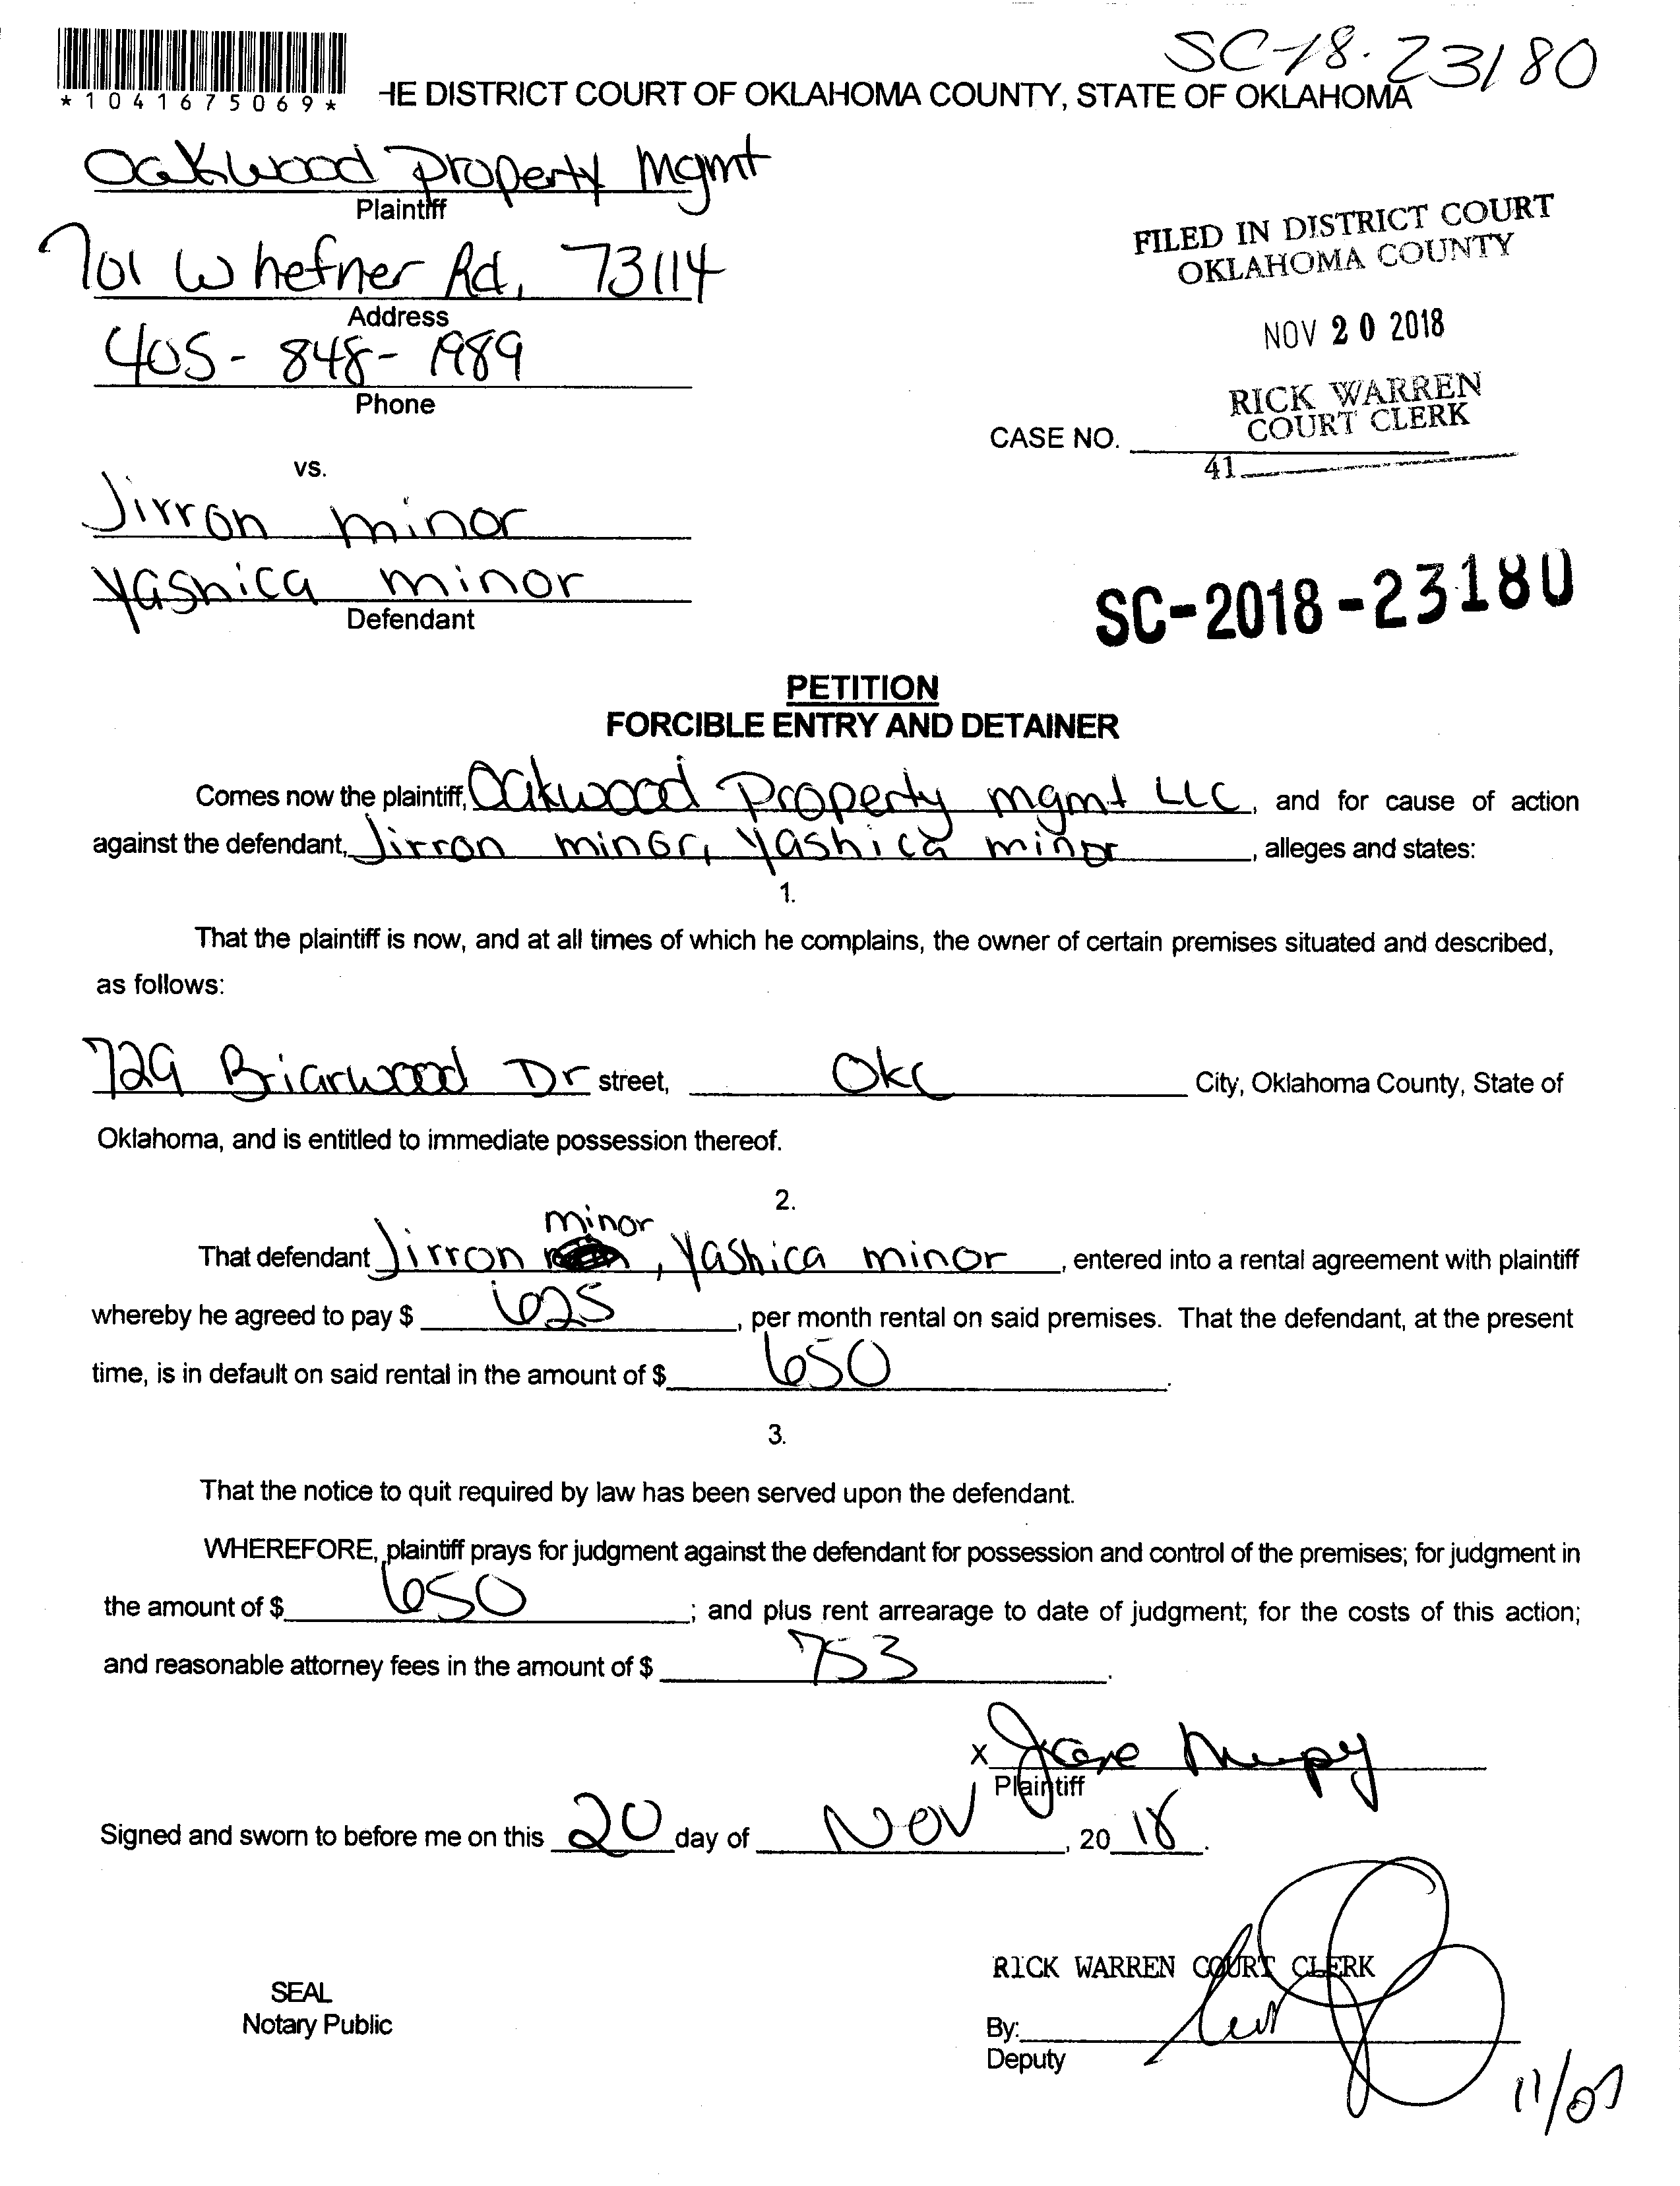 SC-18-23180
*1041675069*
HE DISTRICT COURT OF OKLAHOMA COUNTY, STATE OF OKLAHOMA
Oakwood Property Mgmt
Plaintiff
701 W hefner Rd, 73114
Address
405-848-1989
Phone
FILED IN DISTRICT COURT
OKLAHOMA COUNTY
NOV 20 2018
RICK WARREN
COURT CLERK
CASE NO.
41
vs.
Jirron minor
Yashica minor
Defendant
SC-2018-23180
PETITION
FORCIBLE ENTRY AND DETAINER
Comes now the plaintiff, Oakwood Property mgmt LLC, and for cause of action
against the defendant, Jirron minor, Yashica minor, alleges and states:
1.
That the plaintiff is now, and at all times of which he complains, the owner of certain premises situated and described,
as follows:
729 Briarwood Dr street, Okc City, Oklahoma County, State of
Oklahoma, and is entitled to immediate possession thereof.
2.
minor
That defendant Jirron , Yashica minor, entered into a rental agreement with plaintiff
whereby he agreed to pay $ 625, per month rental on said premises. That the defendant, at the present
time, is in default on said rental in the amount of $ 650.
3.
That the notice to quit required by law has been served upon the defendant.
WHEREFORE, plaintiff prays for judgment against the defendant for possession and control of the premises; for judgment in
the amount of $ 650; and plus rent arrearage to date of judgment; for the costs of this action;
and reasonable attorney fees in the amount of $ 753.
X
Plaintiff
Signed and sworn to before me on this 20 day of Nov, 20 18.
RICK WARREN COURT CLERK
SEAL
Notary Public
By:
Deputy
11/07